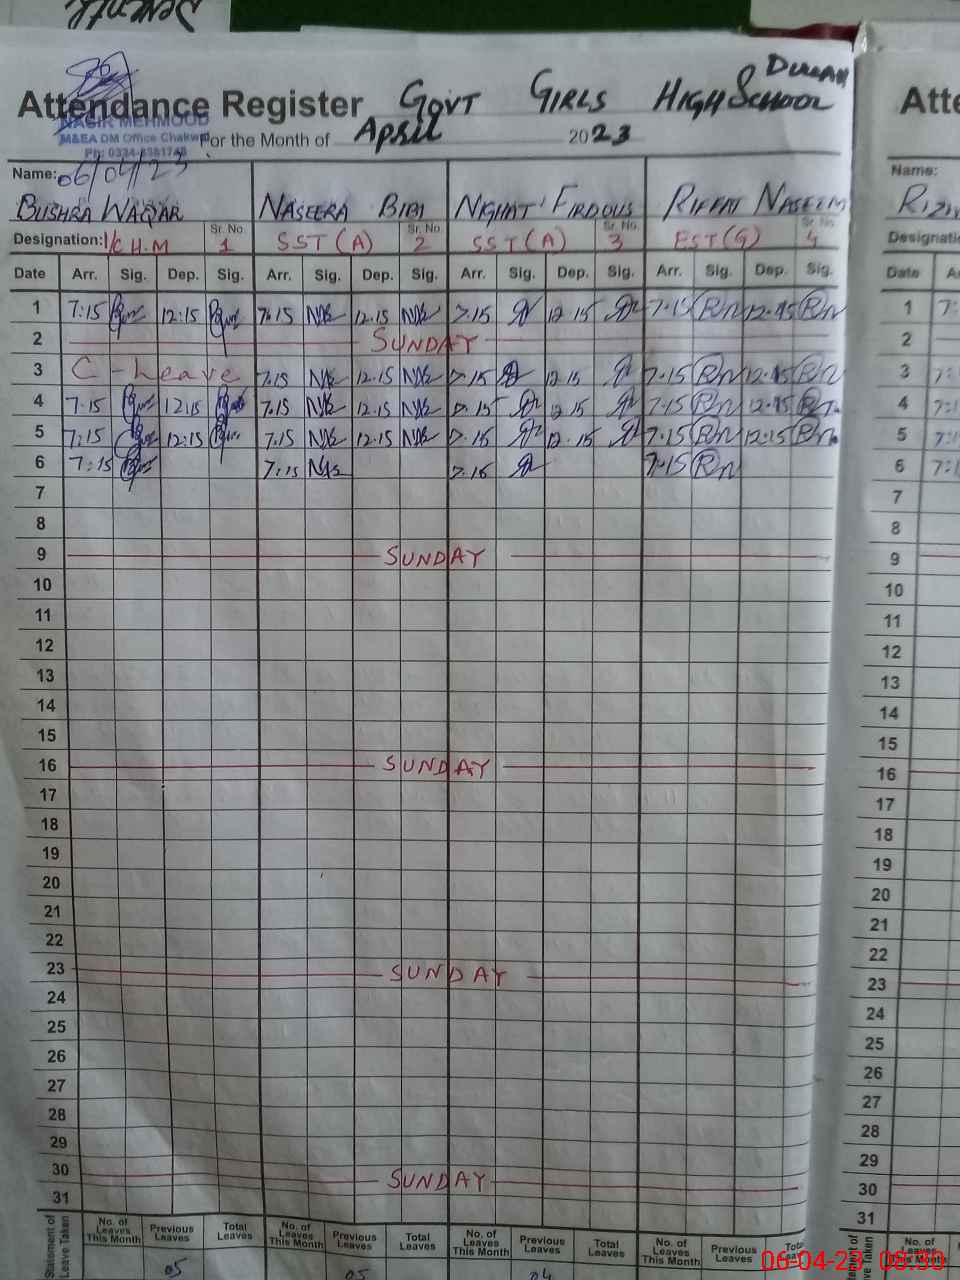 Attendance Register GOVT GIRLS HIGH SCHOOL
NASIR MEHMOOD
M&EA DM Office Chakwal
For the Month of April 2023
06/04/23
Name:
BUSHRA WAQAR NASEERA BIBI NIGHAT FIRDOUS RIFFAT NASEEM
Designation: I/C H.M Sr. No. 1 SST (A) Sr. No. 2 SST (A) Sr. No. 3 EST (G) Sr. No. 4
Date Arr. Sig. Dep. Sig. Arr. Sig. Dep. Sig. Arr. Sig. Dep. Sig. Arr. Sig. Dep. Sig.
1 7:15 12:15 7.15 12.15 7.15 12.15 7.15 Rn 12.15 Rn
2 SUNDAY
3 C-Leave 7.15 12.15 7.15 12.15 7.15 Rn 12.15 Rn
4 7.15 12:15 7.15 12.15 7.15 12.15 7.15 Rn 12.15 Rn
5 7:15 12:15 7.15 12.15 7.15 12.15 7.15 Rn 12.15 Rn
6 7:15 7:15 7.15 7.15 Rn
7
8
9 SUNDAY
10
11
12
13
14
15
16 SUNDAY
17
18
19
20
21
22
23 SUNDAY
24
25
26
27
28
29
30 SUNDAY
31
Statement of Leave Taken
No. of Leaves This Month Previous Leaves Total Leaves No. of Leaves This Month Previous Leaves Total Leaves No. of Leaves This Month Previous Leaves Total Leaves No. of Leaves This Month Previous Leaves
05 05 04
06-04-23 08:30
Atte
Name:
Designati
Date
1
2
3
4
5
6
7
8
9
10
11
12
13
14
15
16
17
18
19
20
21
22
23
24
25
26
27
28
29
30
31
No. of Leaves